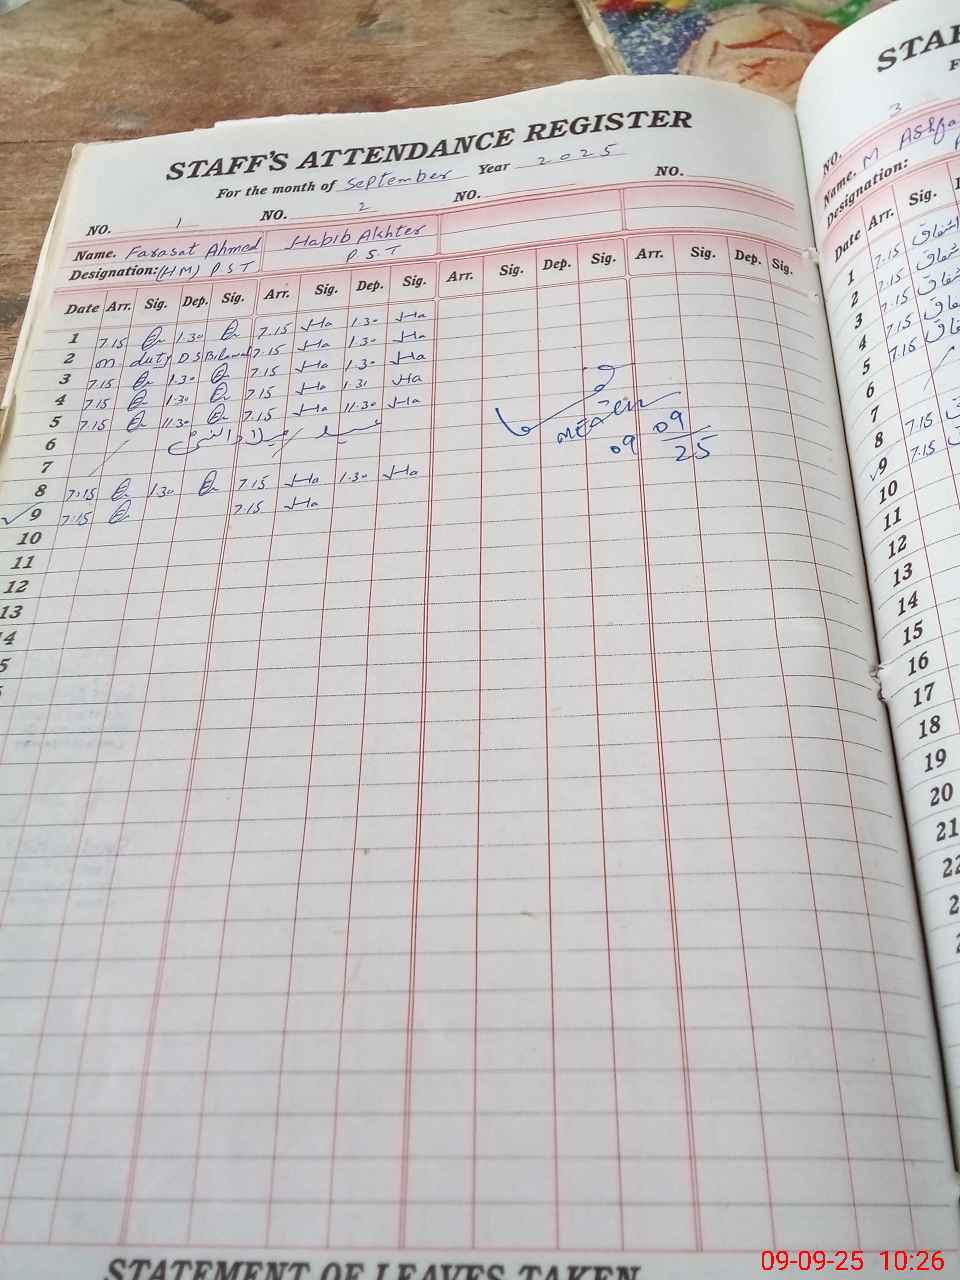 STAFF'S ATTENDANCE REGISTER
For the month of September Year 2025
NO. 1 NO. 2 NO. NO.
Name. Farasat Ahmed Habib Akhter
Designation: (HM) P S T P. S. T
Date Arr. Sig. Dep. Sig. Arr. Sig. Dep. Sig. Arr. Sig. Dep. Sig. Arr. Sig. Dep. Sig.
1 7.15 1.30 7.15 Ha 1.30 Ha
2 on duty D S Bilawal 7.15 Ha 1.30 Ha
3 7.15 1.30 7.15 Ha 1.30 Ha
4 7.15 1.30 7.15 Ha 1.31 Ha
5 7.15 11.30 7.15 Ha 11.30 Ha
6 عید میلاد النبی
7
8 7.15 1.30 7.15 Ha 1.30 Ha
9 7.15 7.15 Ha
10
11
12
13
09 09
25
STATEMENT OF LEAVES TAKEN
STAF
F
NO. 3
Name. M Ashfa
Designation:
Date Arr. Sig.
1 7.15 اشفاق
2 7.15 اشفاق
3 7.15 اشفاق
4 7.15
5 7.15
6
7
8 7.15
9 7.15
10
11
12
13
14
15
16
17
18
19
20
21
22
09-09-25 10:26